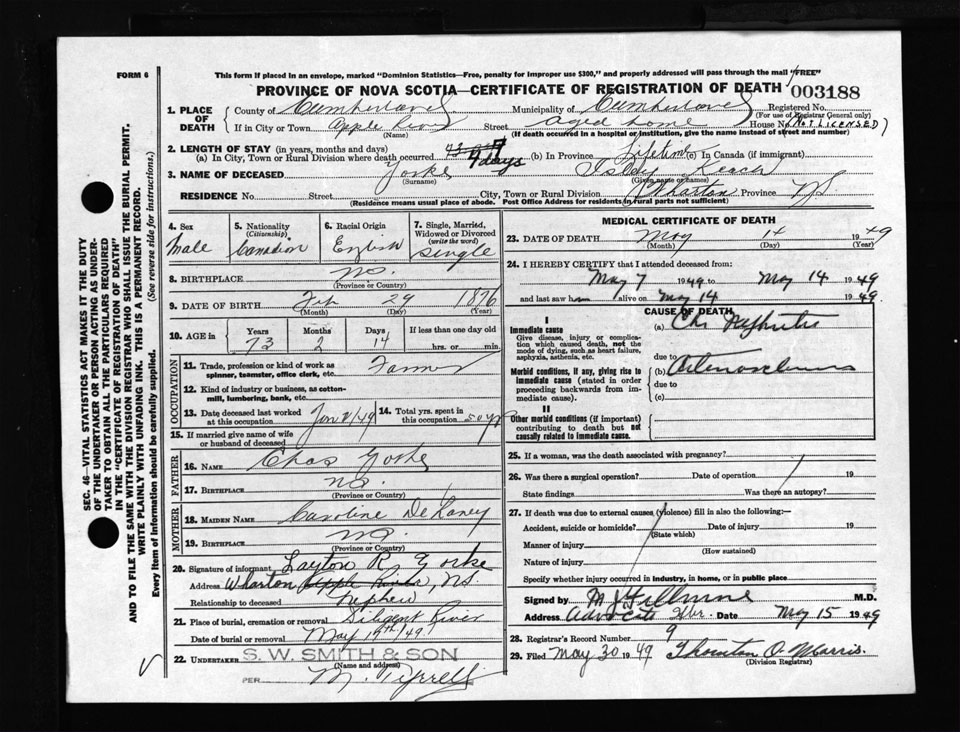 FORM 6
This form if placed in an envelope, marked "Dominion Statistics—Free, penalty for improper use $300," and properly addressed will pass through the mail "FREE"
PROVINCE OF NOVA SCOTIA—CERTIFICATE OF REGISTRATION OF DEATH
003188
1. PLACE OF DEATH { County of Cumberland Municipality of Cumberland Registered No.
(For use of Registrar General only)
If in City or Town Apple River Street aged home House No. (Not LICENSED)
(Name) (If death occurred in a hospital or institution, give the name instead of street and number)
2. LENGTH OF STAY (in years, months and days)
(a) In City, Town or Rural Division where death occurred 7 days (b) In Province Lifetime (c) In Canada (if immigrant)
3. NAME OF DECEASED Yorke
(Surname) (Given name or names)
RESIDENCE No. Street City, Town or Rural Division Wharton Province NS
(Residence means usual place of abode. Post Office Address for residents in rural parts not sufficient)
SEC. 46—VITAL STATISTICS ACT MAKES IT THE DUTY
OF THE UNDERTAKER OR PERSON ACTING AS UNDER-
TAKER TO OBTAIN ALL THE PARTICULARS REQUIRED
IN THE "CERTIFICATE OF REGISTRATION OF DEATH"
AND TO FILE THE SAME WITH THE DIVISION REGISTRAR WHO SHALL ISSUE THE BURIAL PERMIT.
WRITE PLAINLY WITH UNFADING INK. THIS IS A PERMANENT RECORD.
(See reverse side for instructions.)
Every item of Information should be carefully supplied.
4. Sex
Male
5. Nationality
(Citizenship)
Canadian
6. Racial Origin
English
7. Single, Married,
Widowed or Divorced
(write the word)
Single
8. BIRTHPLACE NS.
(Province or Country)
9. DATE OF BIRTH Feb 29 1876
(Month) (Day) (Year)
10. AGE in { Years Months Days If less than one day old
73 2 14 hrs. or min.
OCCUPATION
11. Trade, profession or kind of work as
spinner, teamster, office clerk, etc. Farmer
12. Kind of industry or business, as cotton-
mill, lumbering, bank, etc.
13. Date deceased last worked
at this occupation Jan 8/49
14. Total yrs. spent in
this occupation 50 yr
15. If married give name of wife
or husband of deceased
FATHER
16. NAME Chas Yorke
17. BIRTHPLACE NS.
(Province or Country)
MOTHER
18. MAIDEN NAME Caroline DeLaney
19. BIRTHPLACE NS.
(Province or Country)
20. Signature of informant Layton R Yorke
Address Wharton Apple River, NS.
Relationship to deceased Nephew
21. Place of burial, cremation or removal River
Date of burial or removal May 17th/49
22. UNDERTAKER S. W. SMITH & SON
(Name and address)
PER M. Tyrrell
MEDICAL CERTIFICATE OF DEATH
23. DATE OF DEATH May 14 1949
(Month) (Day) (Year)
24. I HEREBY CERTIFY that I attended deceased from:
May 7 1949 to May 14 1949
and last saw him alive on May 14 1949
CAUSE OF DEATH
I
Immediate cause
Give disease, injury or complica-
tion which caused death, not the
mode of dying, such as heart failure,
asphyxia, asthenia, etc.
(a) Chr Nephritis
due to
Morbid conditions, if any, giving rise to
immediate cause (stated in order
proceeding backwards from im-
mediate cause).
(b) Arteriosclerosis
due to
(c)
II
Other morbid conditions (if important)
contributing to death but not
causally related to immediate cause.
25. If a woman, was the death associated with pregnancy?
26. Was there a surgical operation? Date of operation 19
State findings Was there an autopsy?
27. If death was due to external causes (violence) fill in also the following:—
Accident, suicide or homicide? Date of injury 19
(State which)
Manner of injury
(How sustained)
Nature of injury
Specify whether injury occurred in industry, in home, or in public place
Signed by M.D.
Address Advocate Hbr. Date May 15 1949
28. Registrar's Record Number 9
29. Filed May 30 1949 Thornton O. Morris.
(Division Registrar)